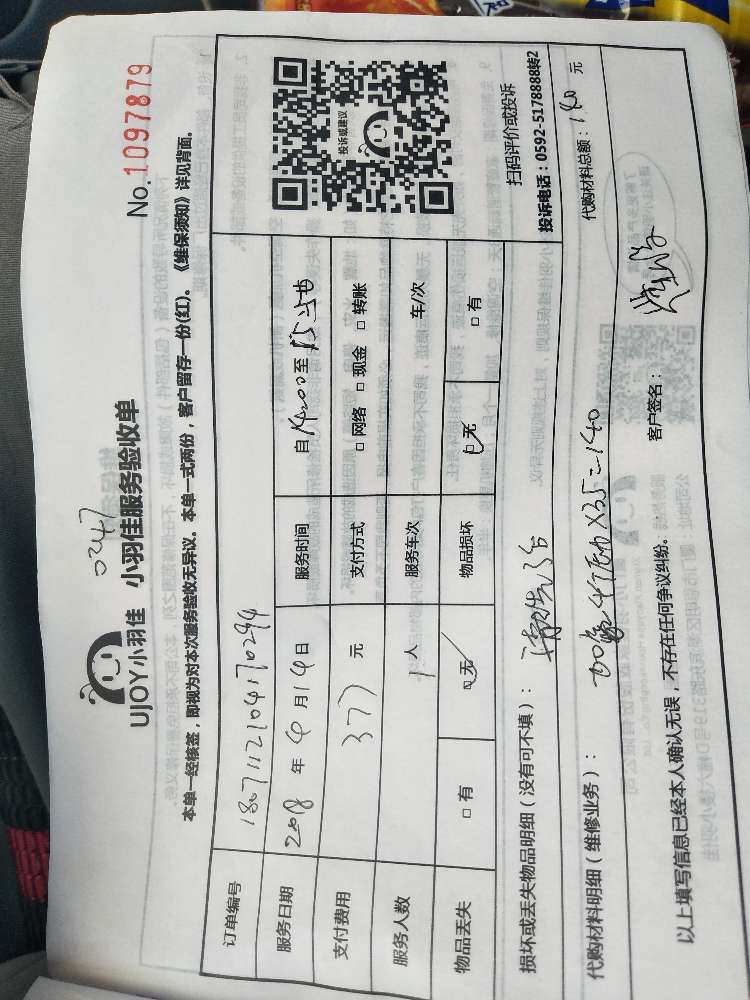 0247
UJOY小羽佳 小羽佳服务验收单
No.1097879
本单一经核签，即视为对本次服务验收无异议。本单一式两份，客户留存一份(红)。《维保须知》详见背面。
订单编号 1807112104170294
服务日期 2018 年 月 14 日 服务时间 自 14:00 至
支付费用 377 元 支付方式 □ 网络 □ 现金 □ 转账
服务人数 1 人 服务车次 车/次
物品丢失 □ 有 □ 无 物品损坏 □ 无 □ 有
投诉或建议
扫码评价或投诉
投诉电话：0592-5178888转2
损坏或丢失物品明细（没有可不填）：
代购材料明细（维修业务）： X35=140 代购材料总额：140 元
以上填写信息已经本人确认无误，不存在任何争议纠纷。 客户签名：